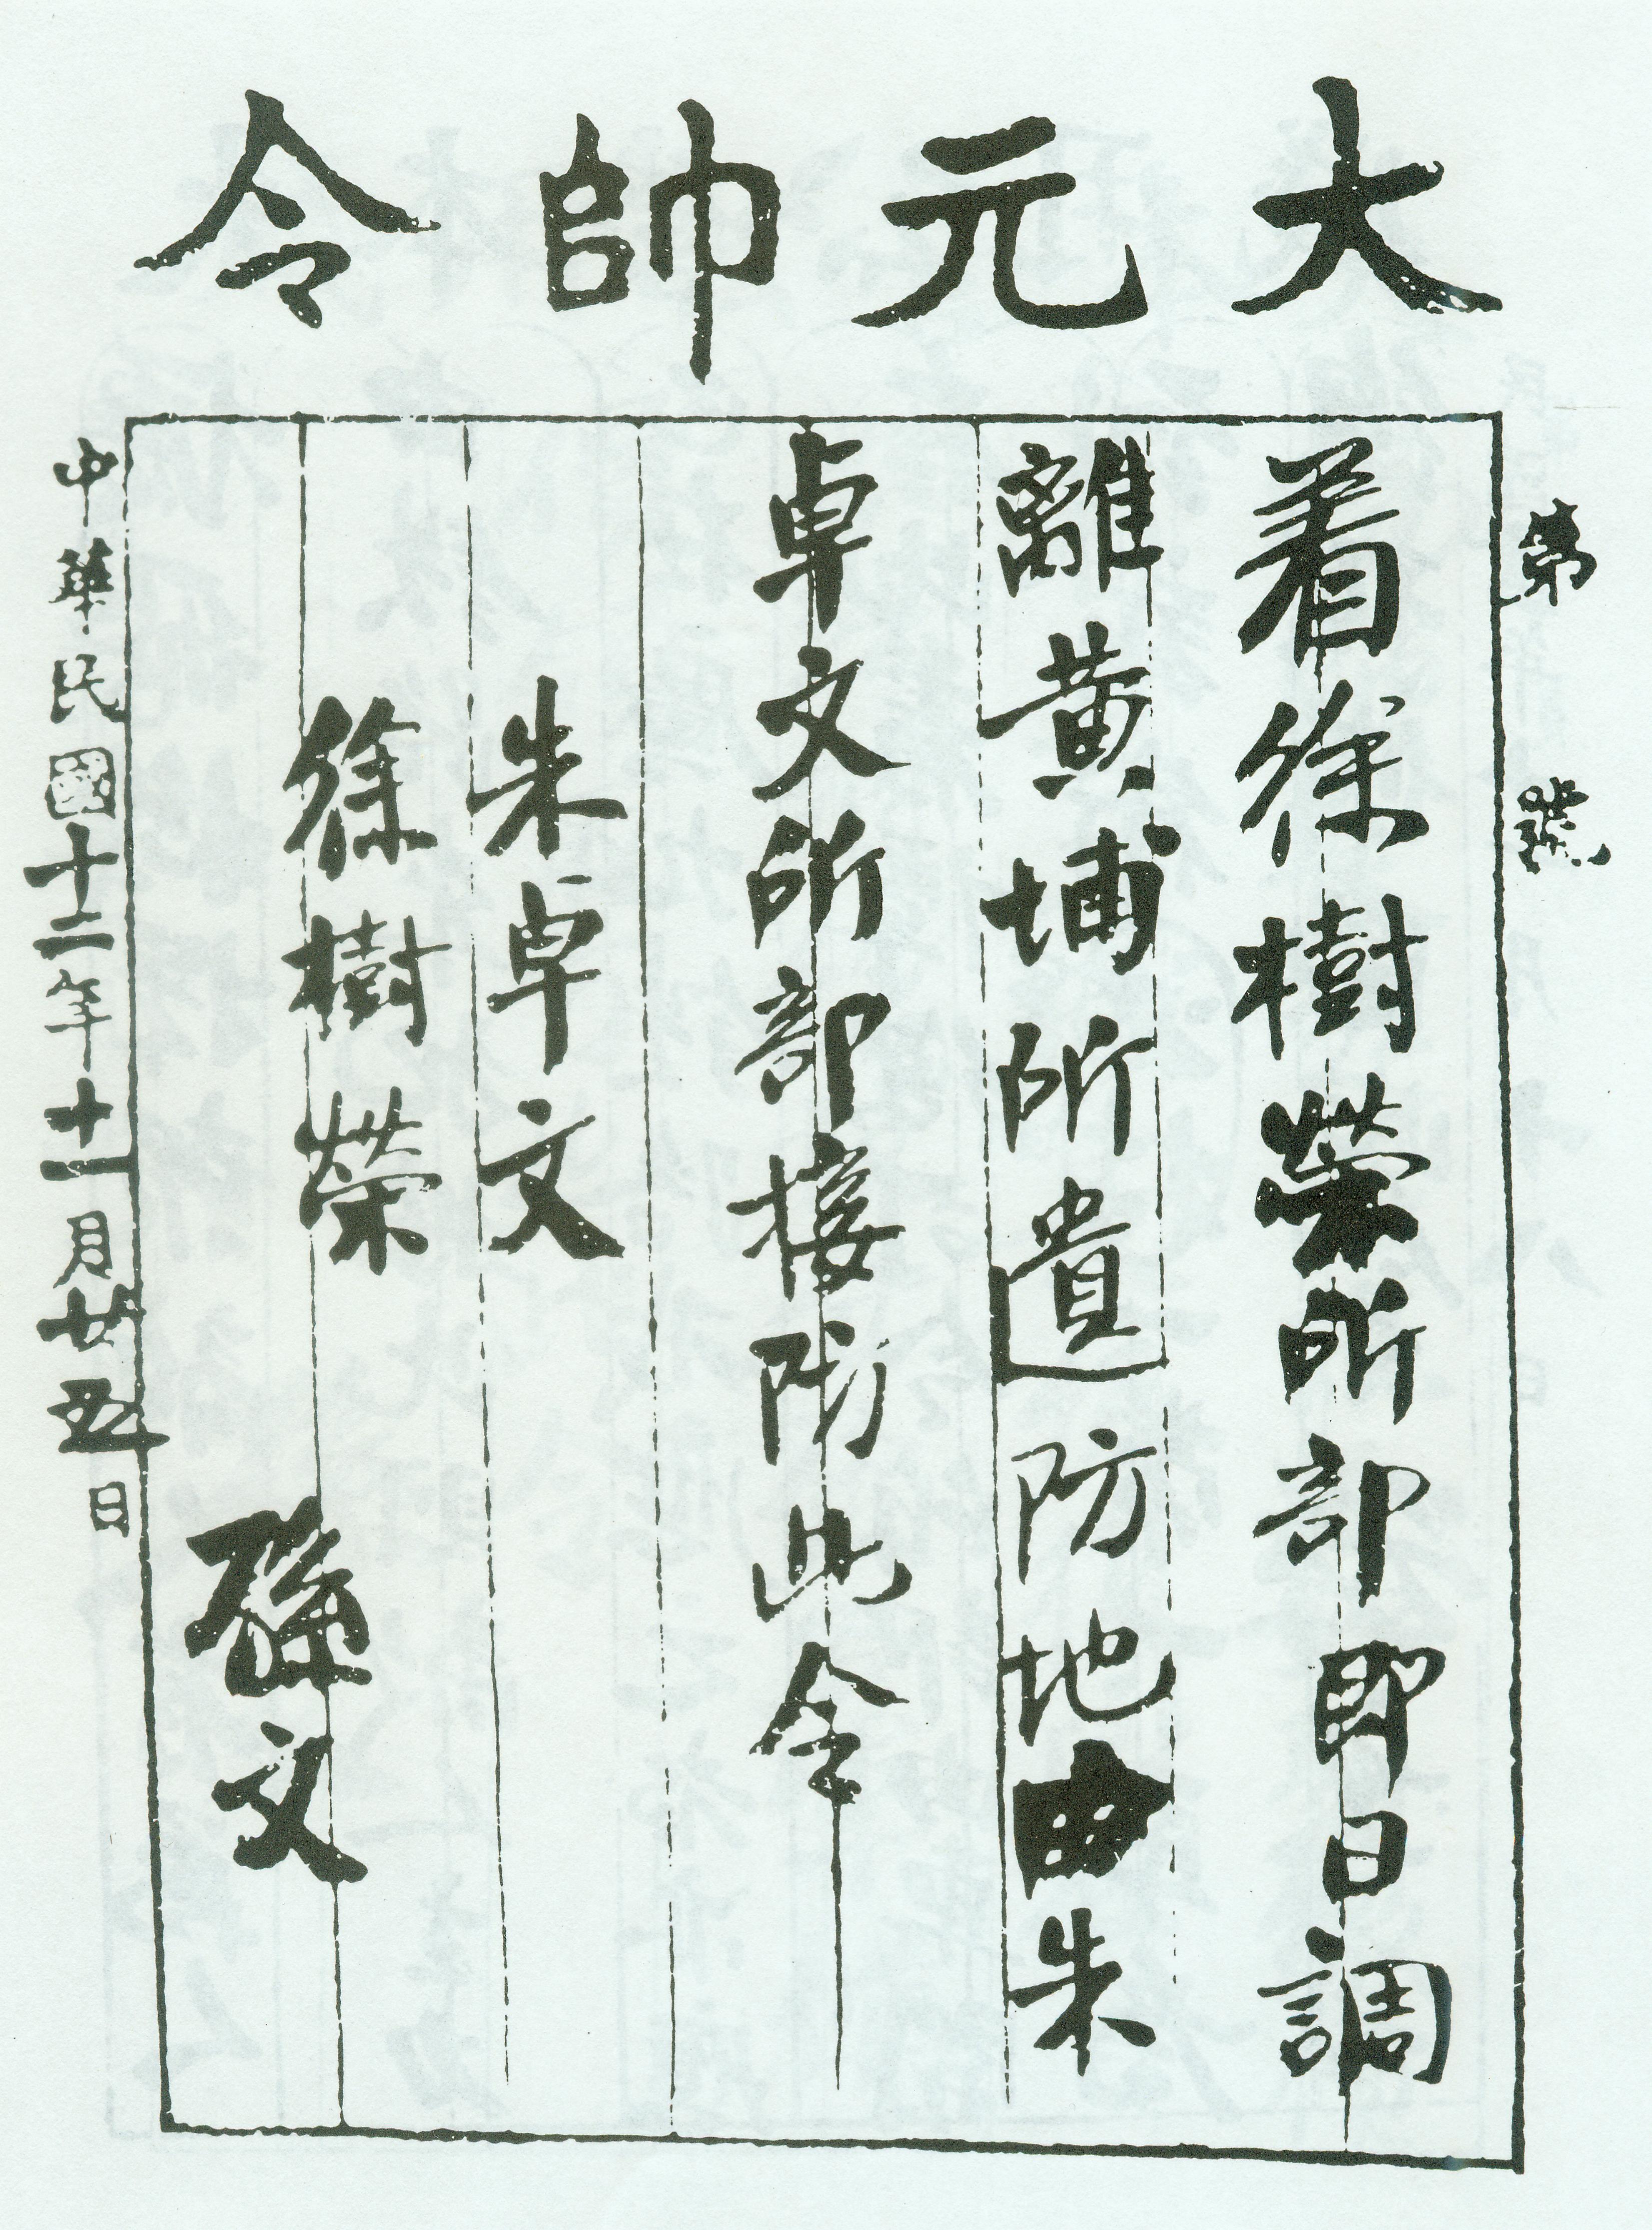 大元帥令
第 號
着徐樹榮所部即日調
離黃埔所遺防地由朱
卓文所部接防此令
朱卓文
徐樹榮
孫文
中華民國十二年十一月廿五日